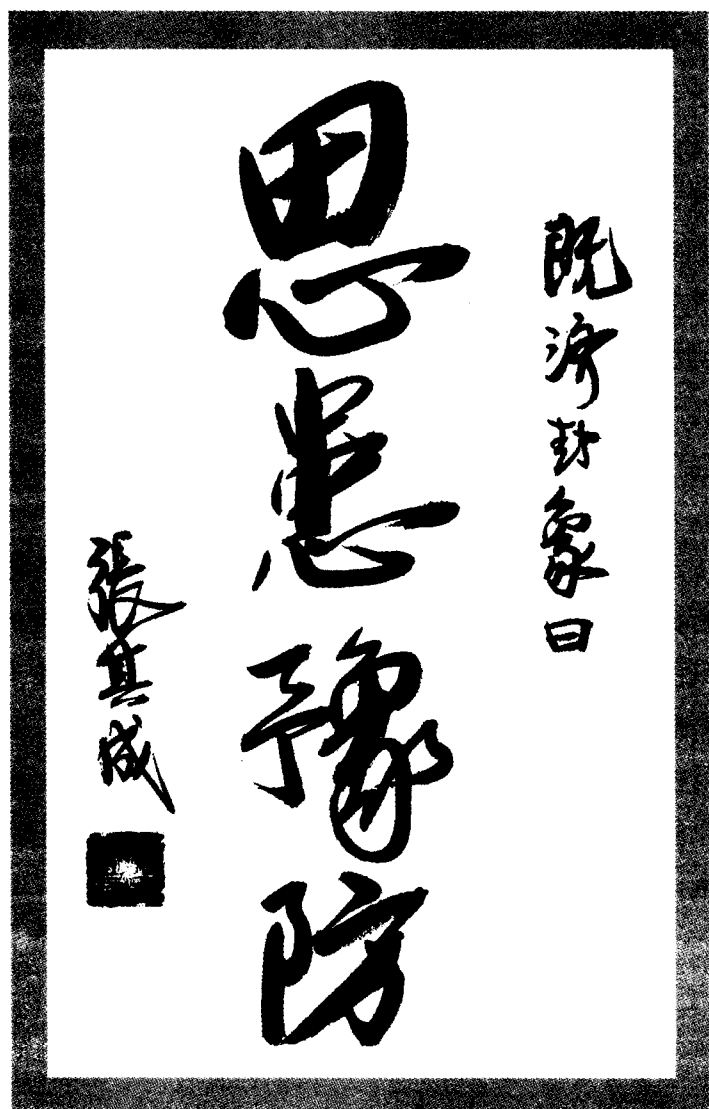 既濟卦象曰
思患豫防
張其成